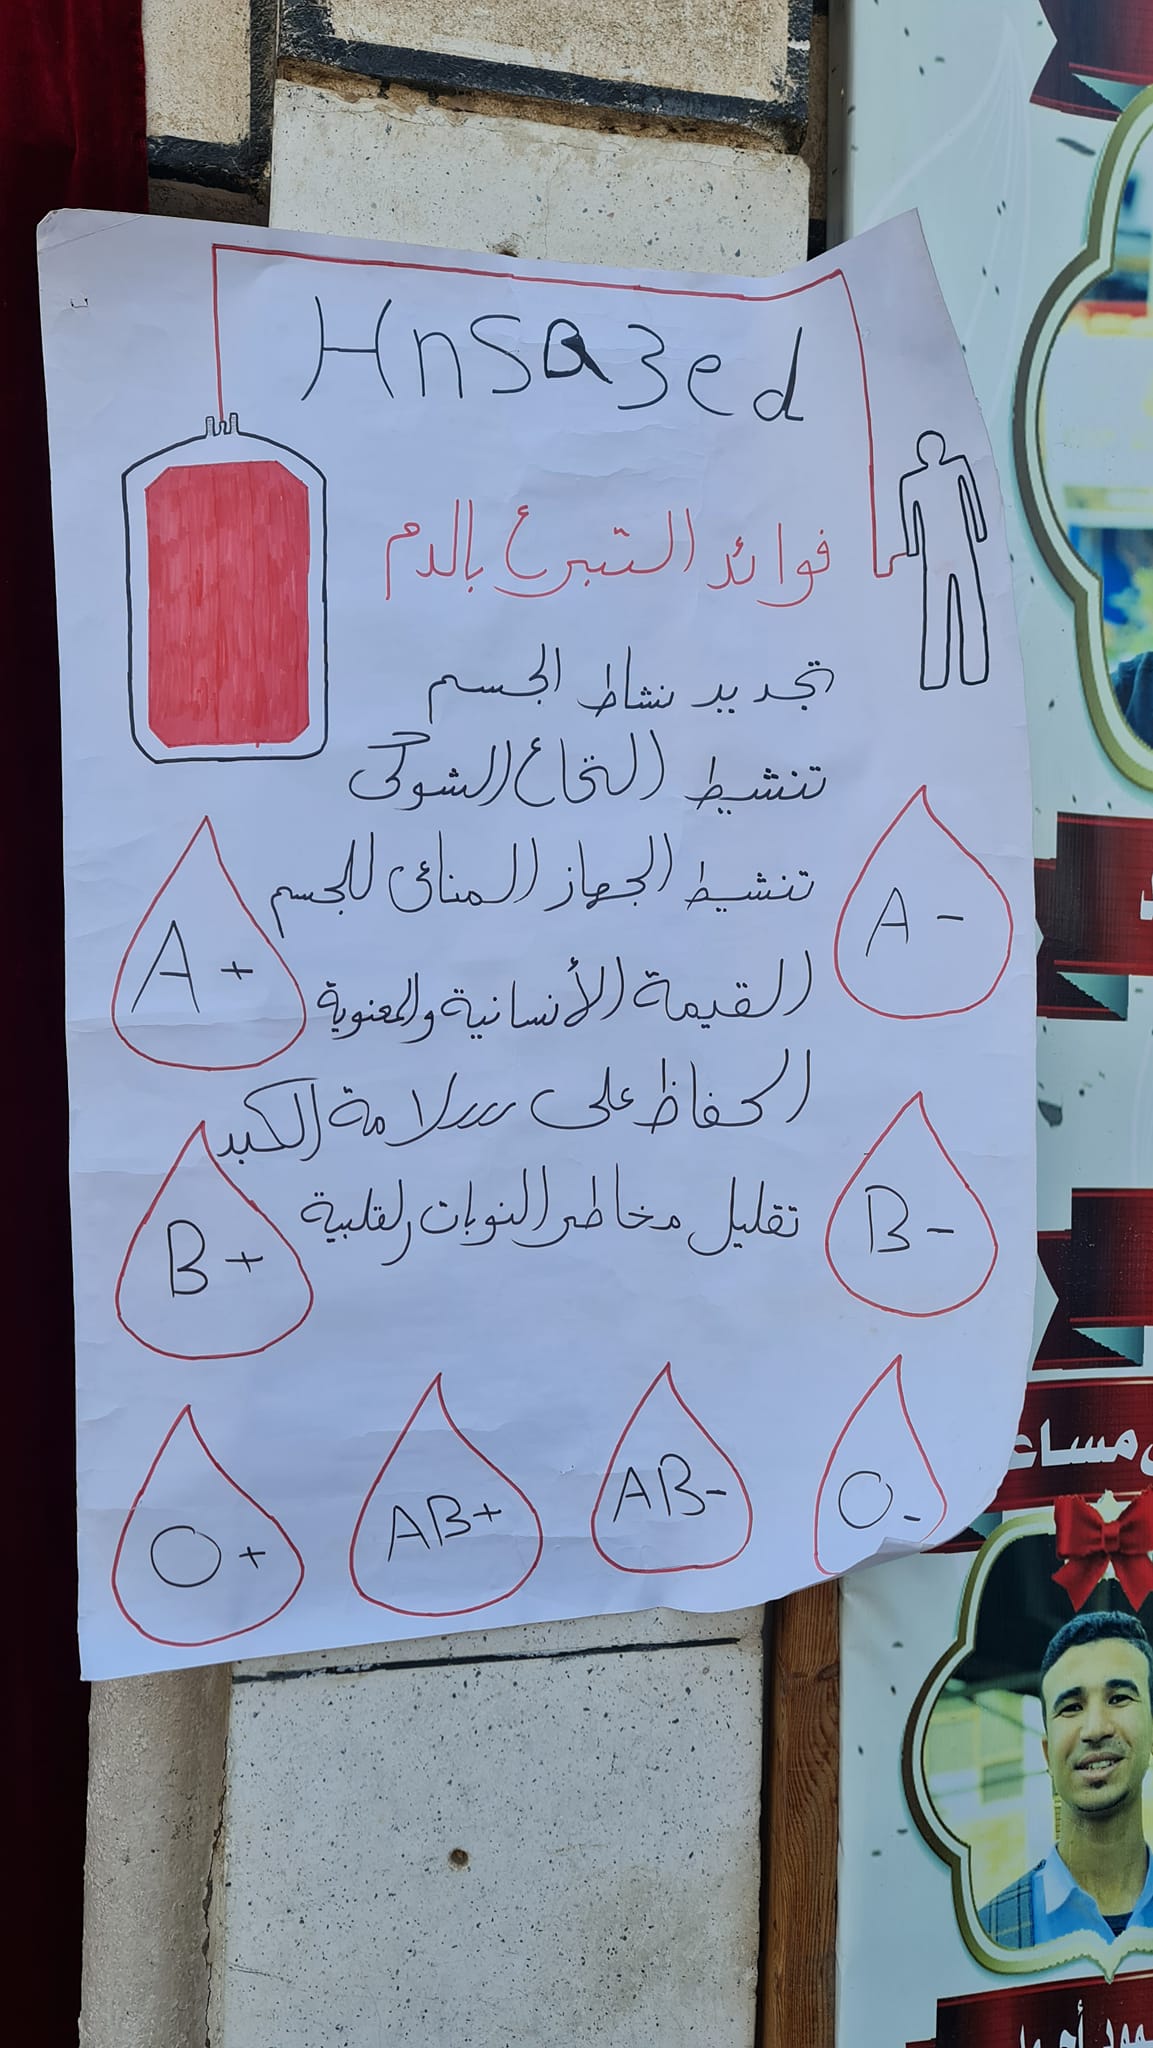 HnSa3ed
فوائد التبرع بالدم
تجديد نشاط الجسم
تنشيط النخاع الشوكى
تنشيط الجهاز المناعى للجسم
القيمة الأنسانية والمعنوية
الحفاظ على سلامة الكبد
تقليل مخاطر النوبات القلبية
A -
A +
B -
B +
O +
AB+
AB-
O -